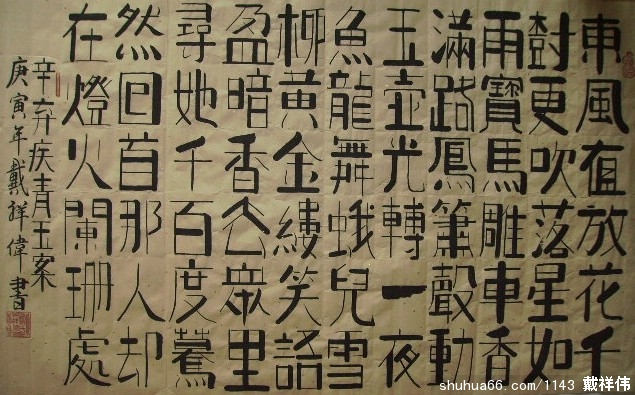 東風亱放花千
樹更吹落星如
雨寶馬雕車香
滿路鳳簫聲動
玉壺光轉一夜
魚龍舞蛾兒雪
柳黃金縷笑語
盈暗香去眾里
尋她千百度驀
然回首那人却
在燈火闌珊處
辛弃疾青玉案
庚寅年戴祥偉書
shuhua66.com/1143 戴祥伟